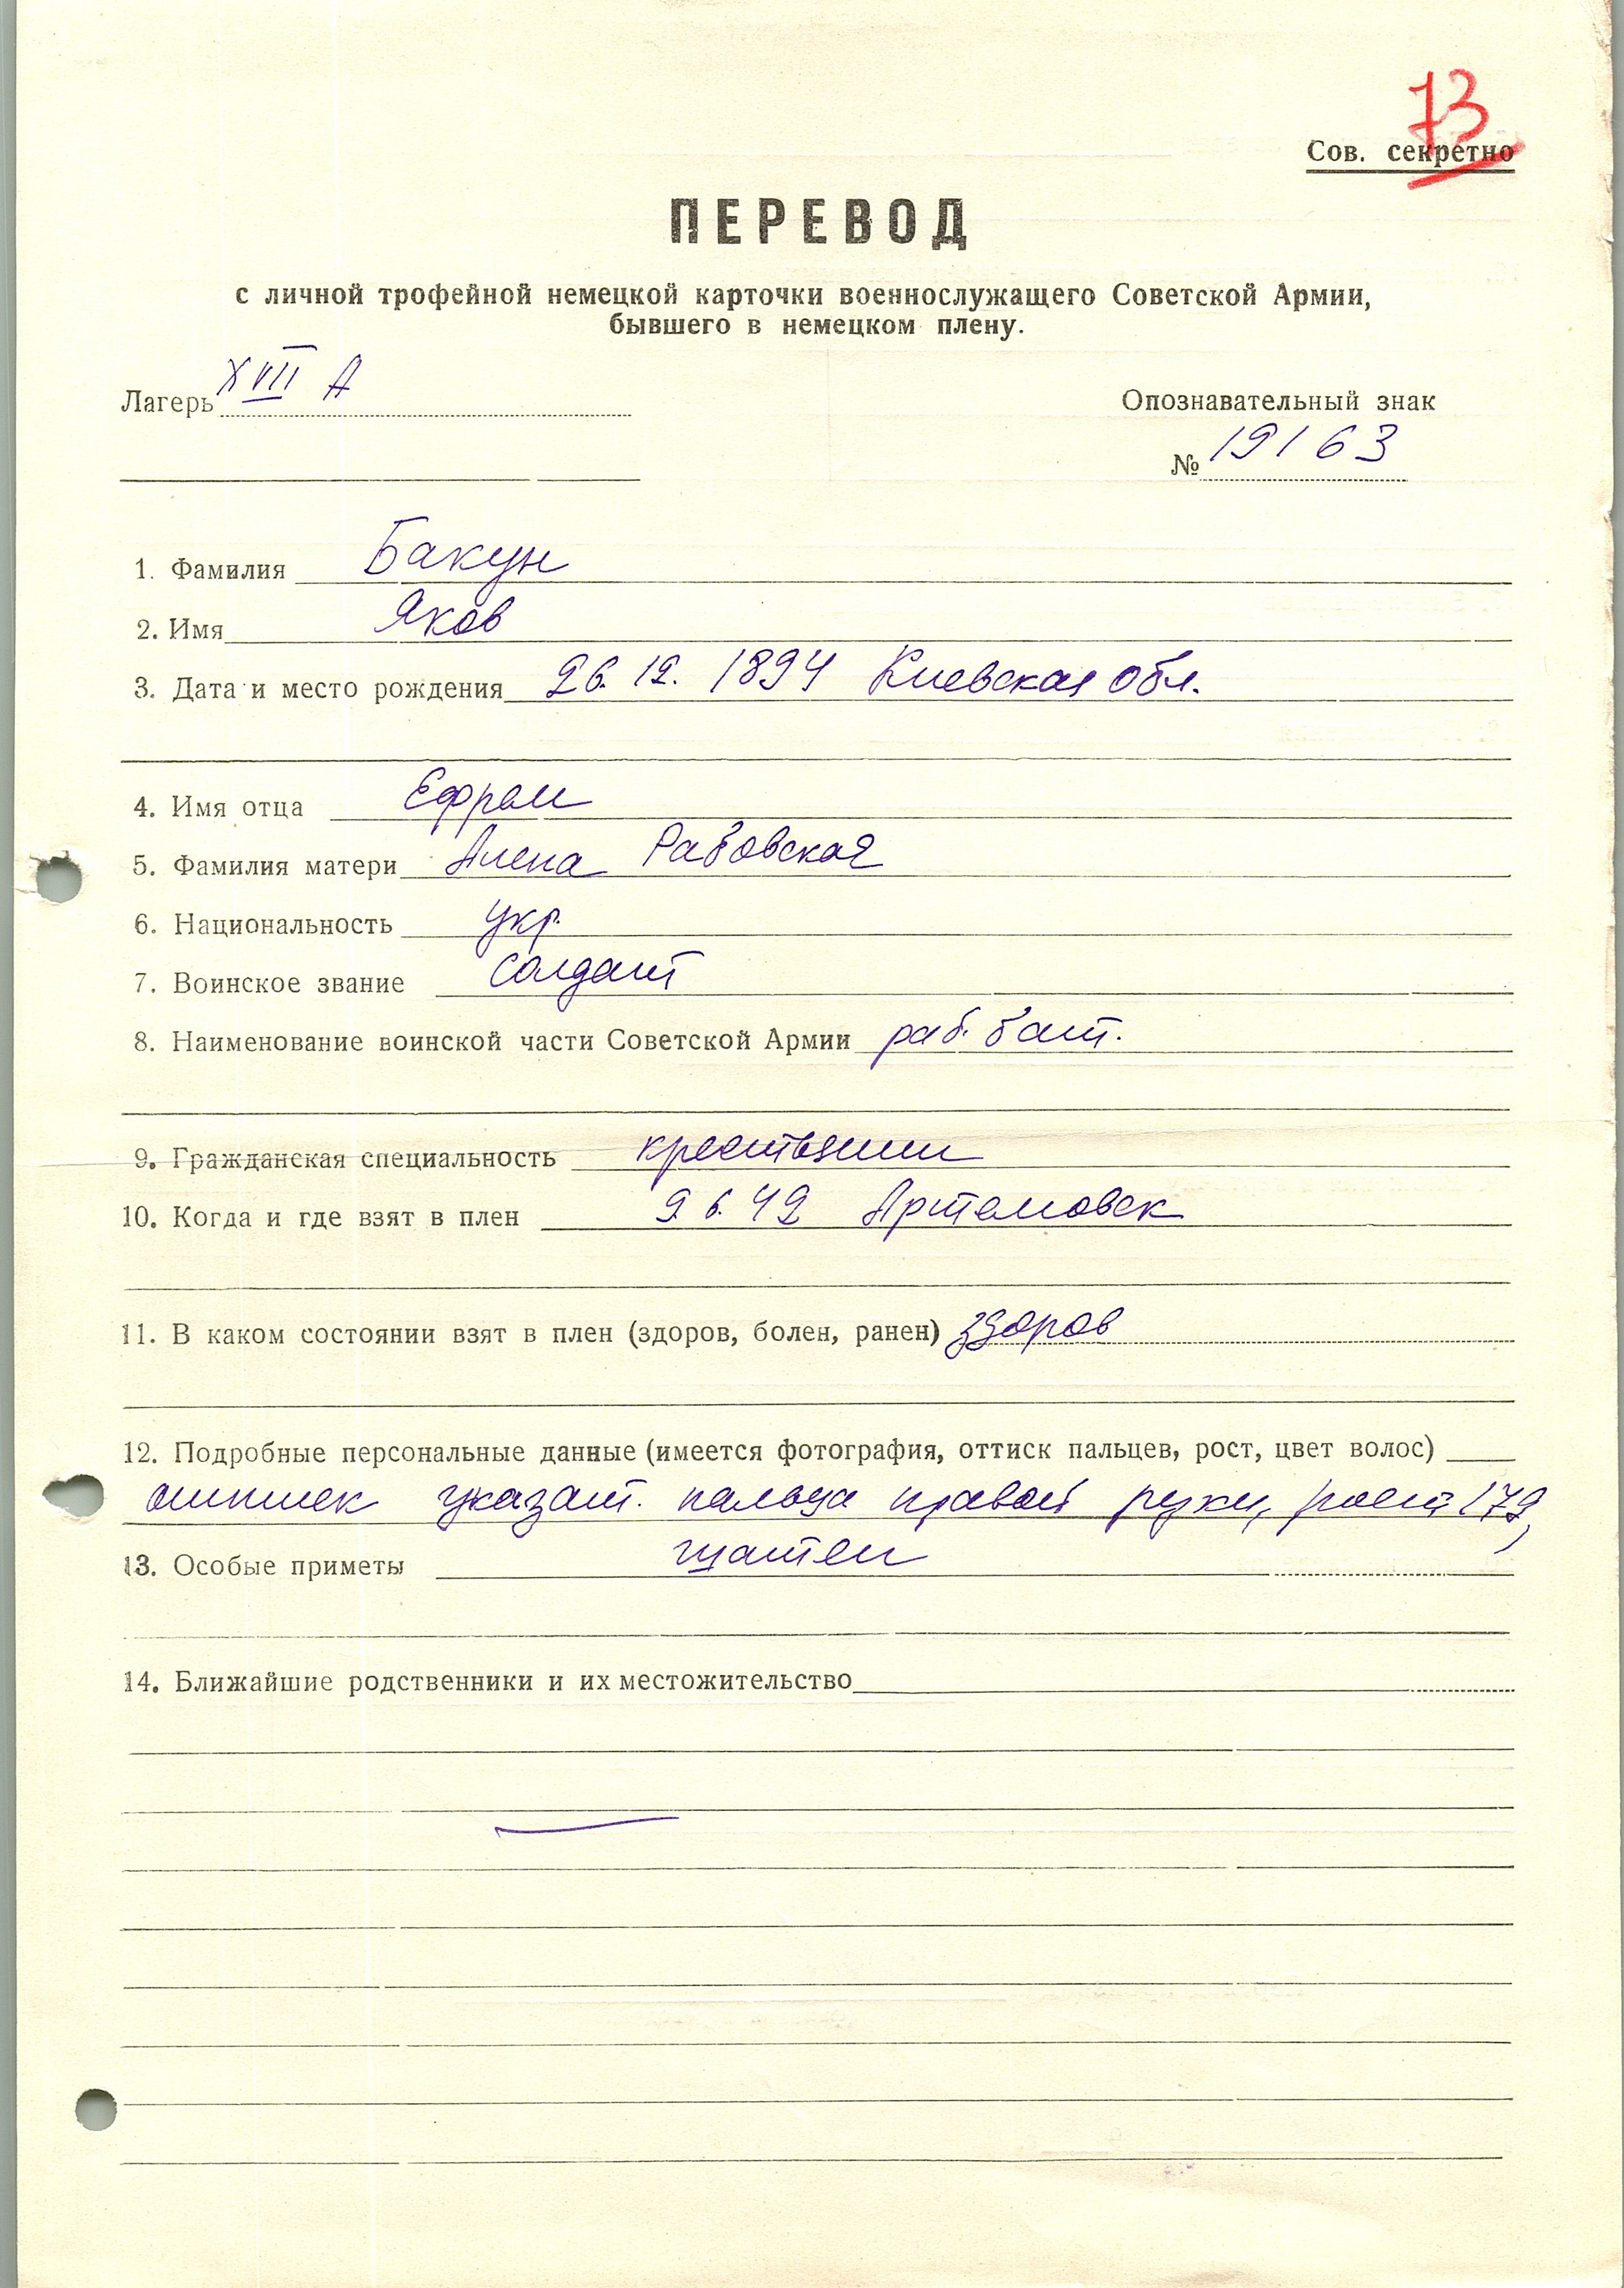 73
Сов. секретно
ПЕРЕВОД
с личной трофейной немецкой карточки военнослужащего Советской Армии,
бывшего в немецком плену.
Лагерь XVII А
Опознавательный знак
№ 19163
1. Фамилия Бакун
2. Имя Яков
3. Дата и место рождения 26.12.1894 Киевская обл.
4. Имя отца Ефрем
5. Фамилия матери Алена Рабовская
6. Национальность укр.
7. Воинское звание солдат
8. Наименование воинской части Советской Армии раб. бат.
9. Гражданская специальность крестьянин
10. Когда и где взят в плен 9.6.42 Артемовск
11. В каком состоянии взят в плен (здоров, болен, ранен) здоров
12. Подробные персональные данные (имеется фотография, оттиск пальцев, рост, цвет волос)
оттиск указат. пальца правой руки, рост 172,
13. Особые приметы шатен
14. Ближайшие родственники и их местожительство